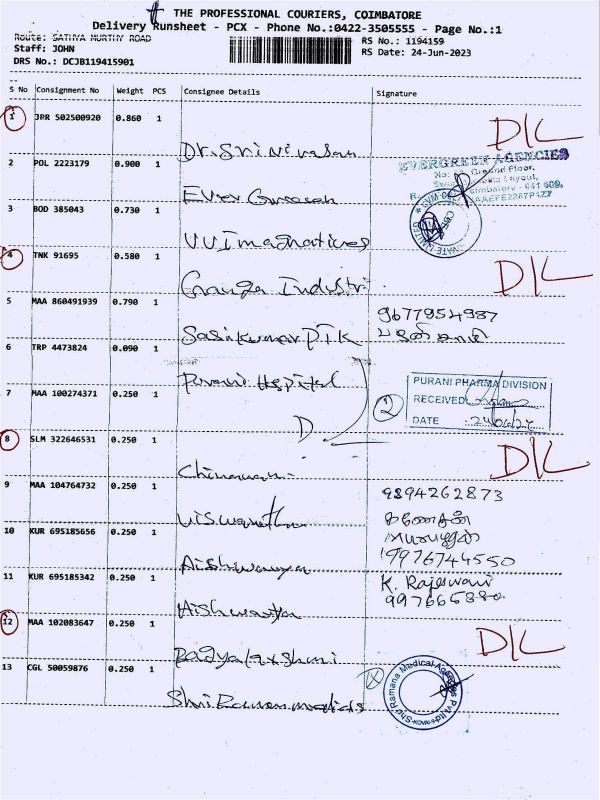 THE PROFESSIONAL COURIERS, COIMBATORE
Delivery Runsheet - PCX - Phone No.:0422-3505555 - Page No.:1
Route: SATHYA MURTHY ROAD
Staff: JOHN
DRS No.: DCJB119415901
RS No.: 1194159
RS Date: 24-Jun-2023
S No Consignment No Weight PCS Consignee Details Signature
1 JRR 502500920 0.860 1
Dr. Srinivasan
D/L
2 POL 2223179 0.900 1
Ever
EVERGREEN AGENCIES
Ground Floor,
3 BOD 385043 0.730 1
VV Imaginatives
4 TNK 91695 0.580 1
Ganga Industri
D/L
5 MAA 860491939 0.790 1
Sasikumar
9677954987
6 TRP 4473824 0.090 1
Purani Hospital
7 MAA 100274371 0.250 1
2
PURANI PHARMA DIVISION
RECEIVED
DATE
8 SLM 322646531 0.250 1
D/L
9 MAA 104764732 0.250 1
Viswanatha
9894262873
கணேசன்
10 KUR 695185656 0.250 1
Aishwarya
9976744550
11 KUR 695185342 0.250 1
Aishwarya
K. Rajeswari
12 MAA 102083647 0.250 1
D/L
13 CGL 50059876 0.250 1
Shri Raman medicals
Shri Ramana Medical Agencies Pvt Ltd